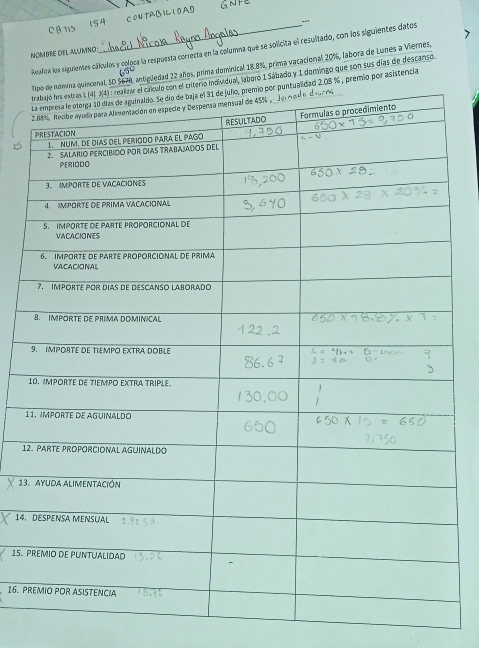 CBTIS 154 CONTABILIDAD GNFE
NOMBRE DEL ALUMNO: Nicole Reyna Angeles
Realiza los siguientes cálculos y coloca la respuesta correcta en la columna que se solicita el resultado, con los siguientes datos
650
Tipo de nómina quincenal, SD $678, antigüedad 22 años, prima dominical 18.8%, prima vacacional 20%, labora de Lunes a Viernes,
trabajó hrs extras L (4) J(4) : realizar el cálculo con el criterio individual, laboró 1 Sábado y 1 domingo que son sus días de descanso.
La empresa le otorga 10 días de aguinaldo. Se dio de baja el 31 de julio, premio por puntualidad 2.08 %, premio por asistencia
2.88%, Recibe ayuda para Alimentación en especie y Despensa mensual de 45%, Jornada diurna
PRESTACION RESULTADO Formulas o procedimiento
1. NUM. DE DIAS DEL PERIODO PARA EL PAGO 9,750 650 x 15 = 9,750
2. SALARIO PERCIBIDO POR DIAS TRABAJADOS DEL L-V
PERIODO
3. IMPORTE DE VACACIONES 18,200 650 x 28=
4. IMPORTE DE PRIMA VACACIONAL 3,640 650 x 28 x 20% =
5. IMPORTE DE PARTE PROPORCIONAL DE
VACACIONES
6. IMPORTE DE PARTE PROPORCIONAL DE PRIMA
VACACIONAL
7. IMPORTE POR DIAS DE DESCANSO LABORADO
8. IMPORTE DE PRIMA DOMINICAL 122.2 650 x 18.8% x 1=
9. IMPORTE DE TIEMPO EXTRA DOBLE 86.67
3
3
10. IMPORTE DE TIEMPO EXTRA TRIPLE. 130.00 1
1
11. IMPORTE DE AGUINALDO 650 650 x 15 = 650
9,750
12. PARTE PROPORCIONAL AGUINALDO
X 13. AYUDA ALIMENTACIÓN
X 14. DESPENSA MENSUAL
15. PREMIO DE PUNTUALIDAD
16. PREMIO POR ASISTENCIA 18.72